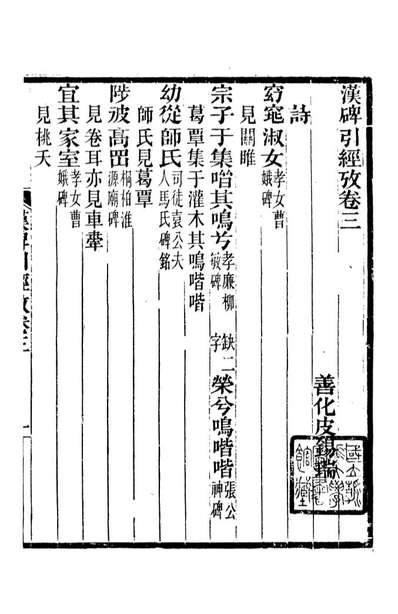 漢碑引經攷卷三
善化皮錫瑞
詩
窈窕淑女孝女曹娥碑
見關雎
宗子于集喈其鳴兮孝廉柳敏碑缺二字榮兮鳴喈喈張公神碑
葛覃集于灌木其鳴喈喈
幼從師氏司徒袁公夫人馬氏碑銘
師氏見葛覃
陟彼高罡桐柏淮源廟碑
見卷耳亦見車舝
宜其家室孝女曹娥碑
見桃夭